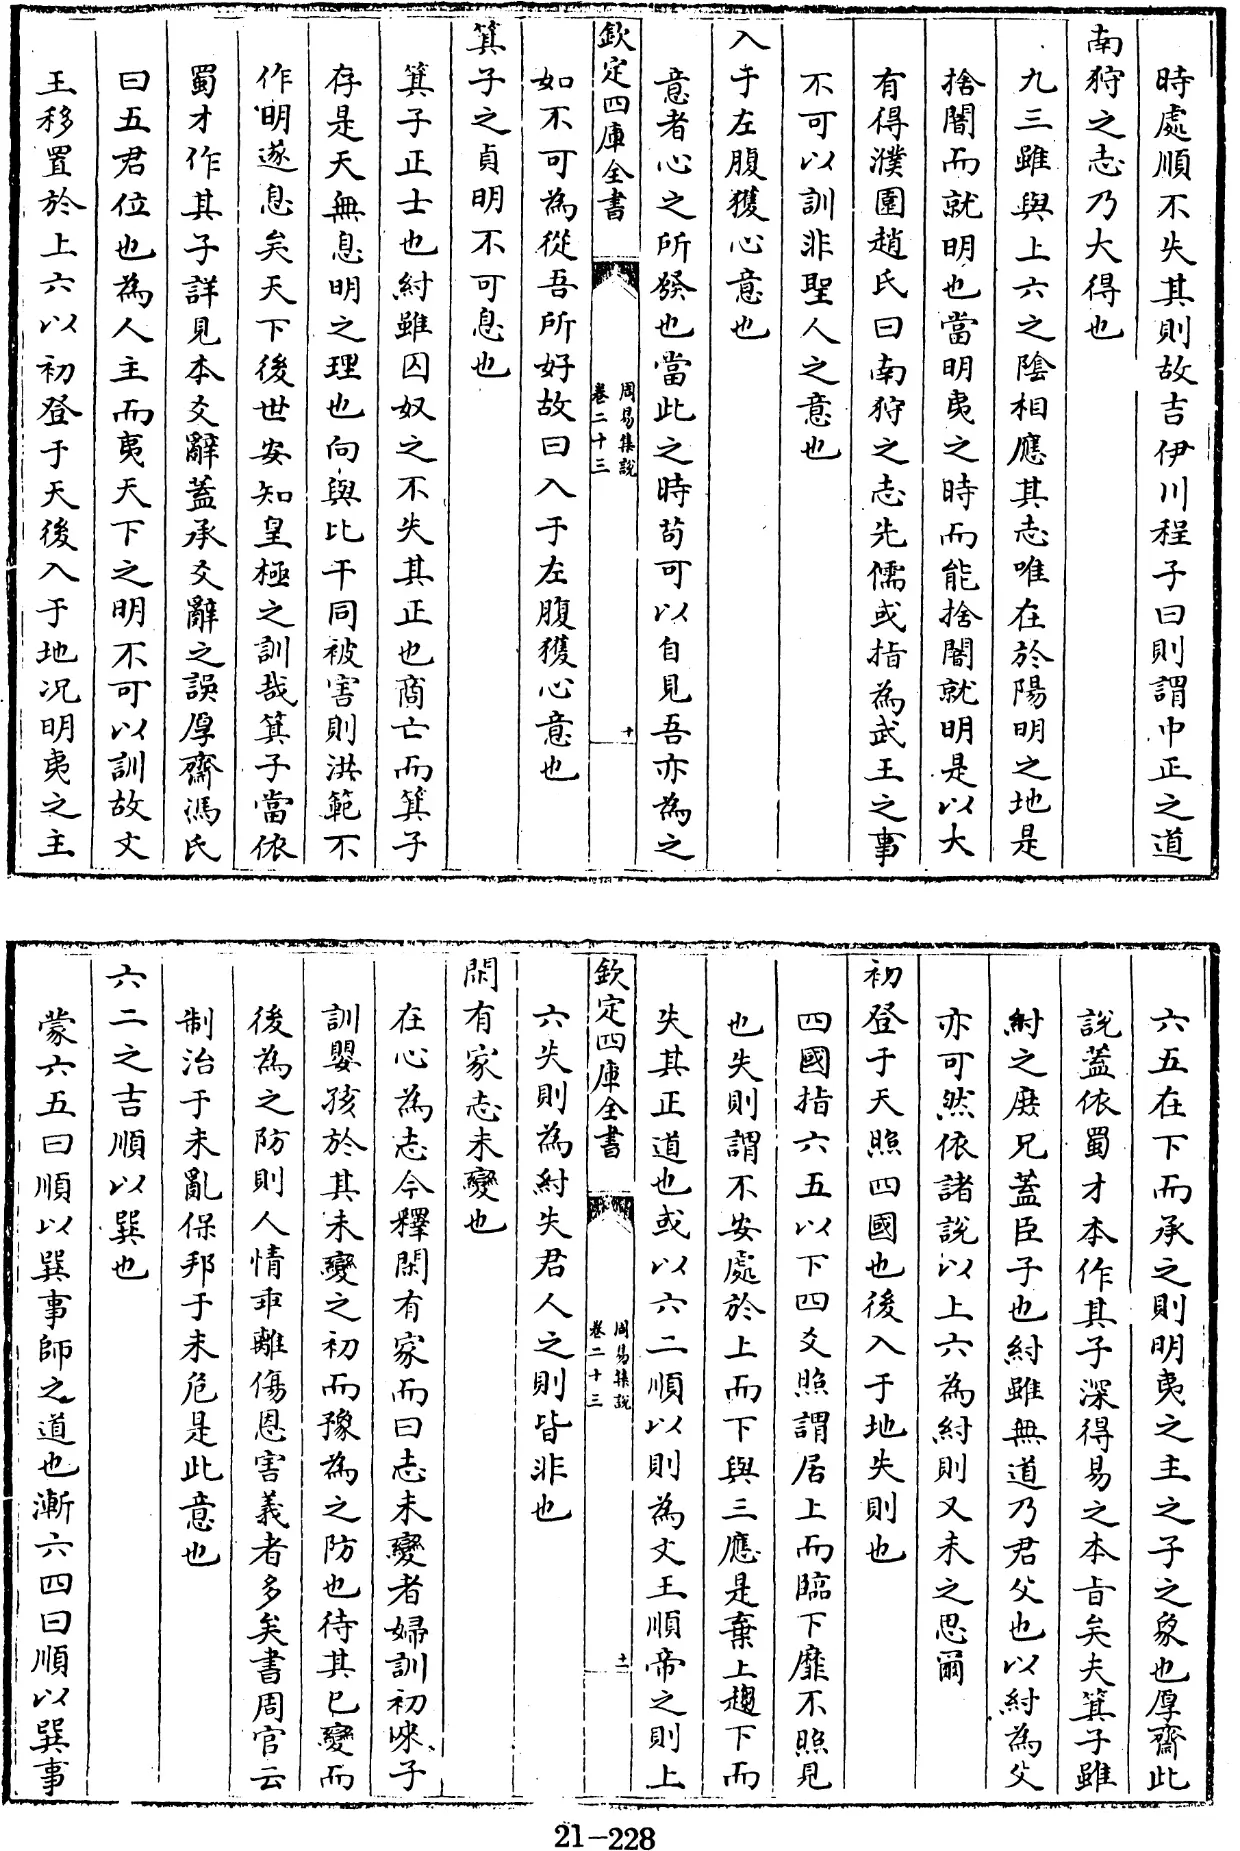 時處順不失其則故吉伊川程子曰則謂中正之道
南狩之志乃大得也
九三雖與上六之陰相應其志唯在於陽明之地是
捨闇而就明也當明夷之時而能捨闇就明是以大
有得濮園趙氏曰南狩之志先儒或指為武王之事
不可以訓非聖人之意也
入于左腹獲心意也
意者心之所發也當此之時苟可以自見吾亦為之
欽定四庫全書
周易集説
卷二十三
十
如不可為從吾所好故曰入于左腹獲心意也
箕子之貞明不可息也
箕子正士也紂雖囚奴之不失其正也商亡而箕子
存是天無息明之理也向與比干同被害則洪範不
作明遂息矣天下後世安知皇極之訓哉箕子當依
蜀才作其子詳見本爻辭蓋承爻辭之誤厚齋馮氏
曰五君位也為人主而夷天下之明不可以訓故文
王移置於上六以初登于天後入于地况明夷之主
六五在下而承之則明夷之主之子之象也厚齋此
說蓋依蜀才本作其子深得易之本旨矣夫箕子雖
紂之庶兄蓋臣子也紂雖無道乃君父也以紂為父
亦可然依諸說以上六為紂則又未之思爾
初登于天照四國也後入于地失則也
四國指六五以下四爻照謂居上而臨下靡不照見
也失則謂不安處於上而下與三應是棄上趨下而
失其正道也或以六二順以則為文王順帝之則上
欽定四庫全書
周易集説
卷二十三
十一
六失則為紂失君人之則皆非也
閑有家志未變也
在心為志今釋閑有家而曰志未變者婦訓初來子
訓嬰孩於其未變之初而豫為之防也待其已變而
後為之防則人情乖離傷恩害義者多矣書周官云
制治于未亂保邦于未危是此意也
六二之吉順以巽也
蒙六五曰順以巽事師之道也漸六四曰順以巽事
21-228